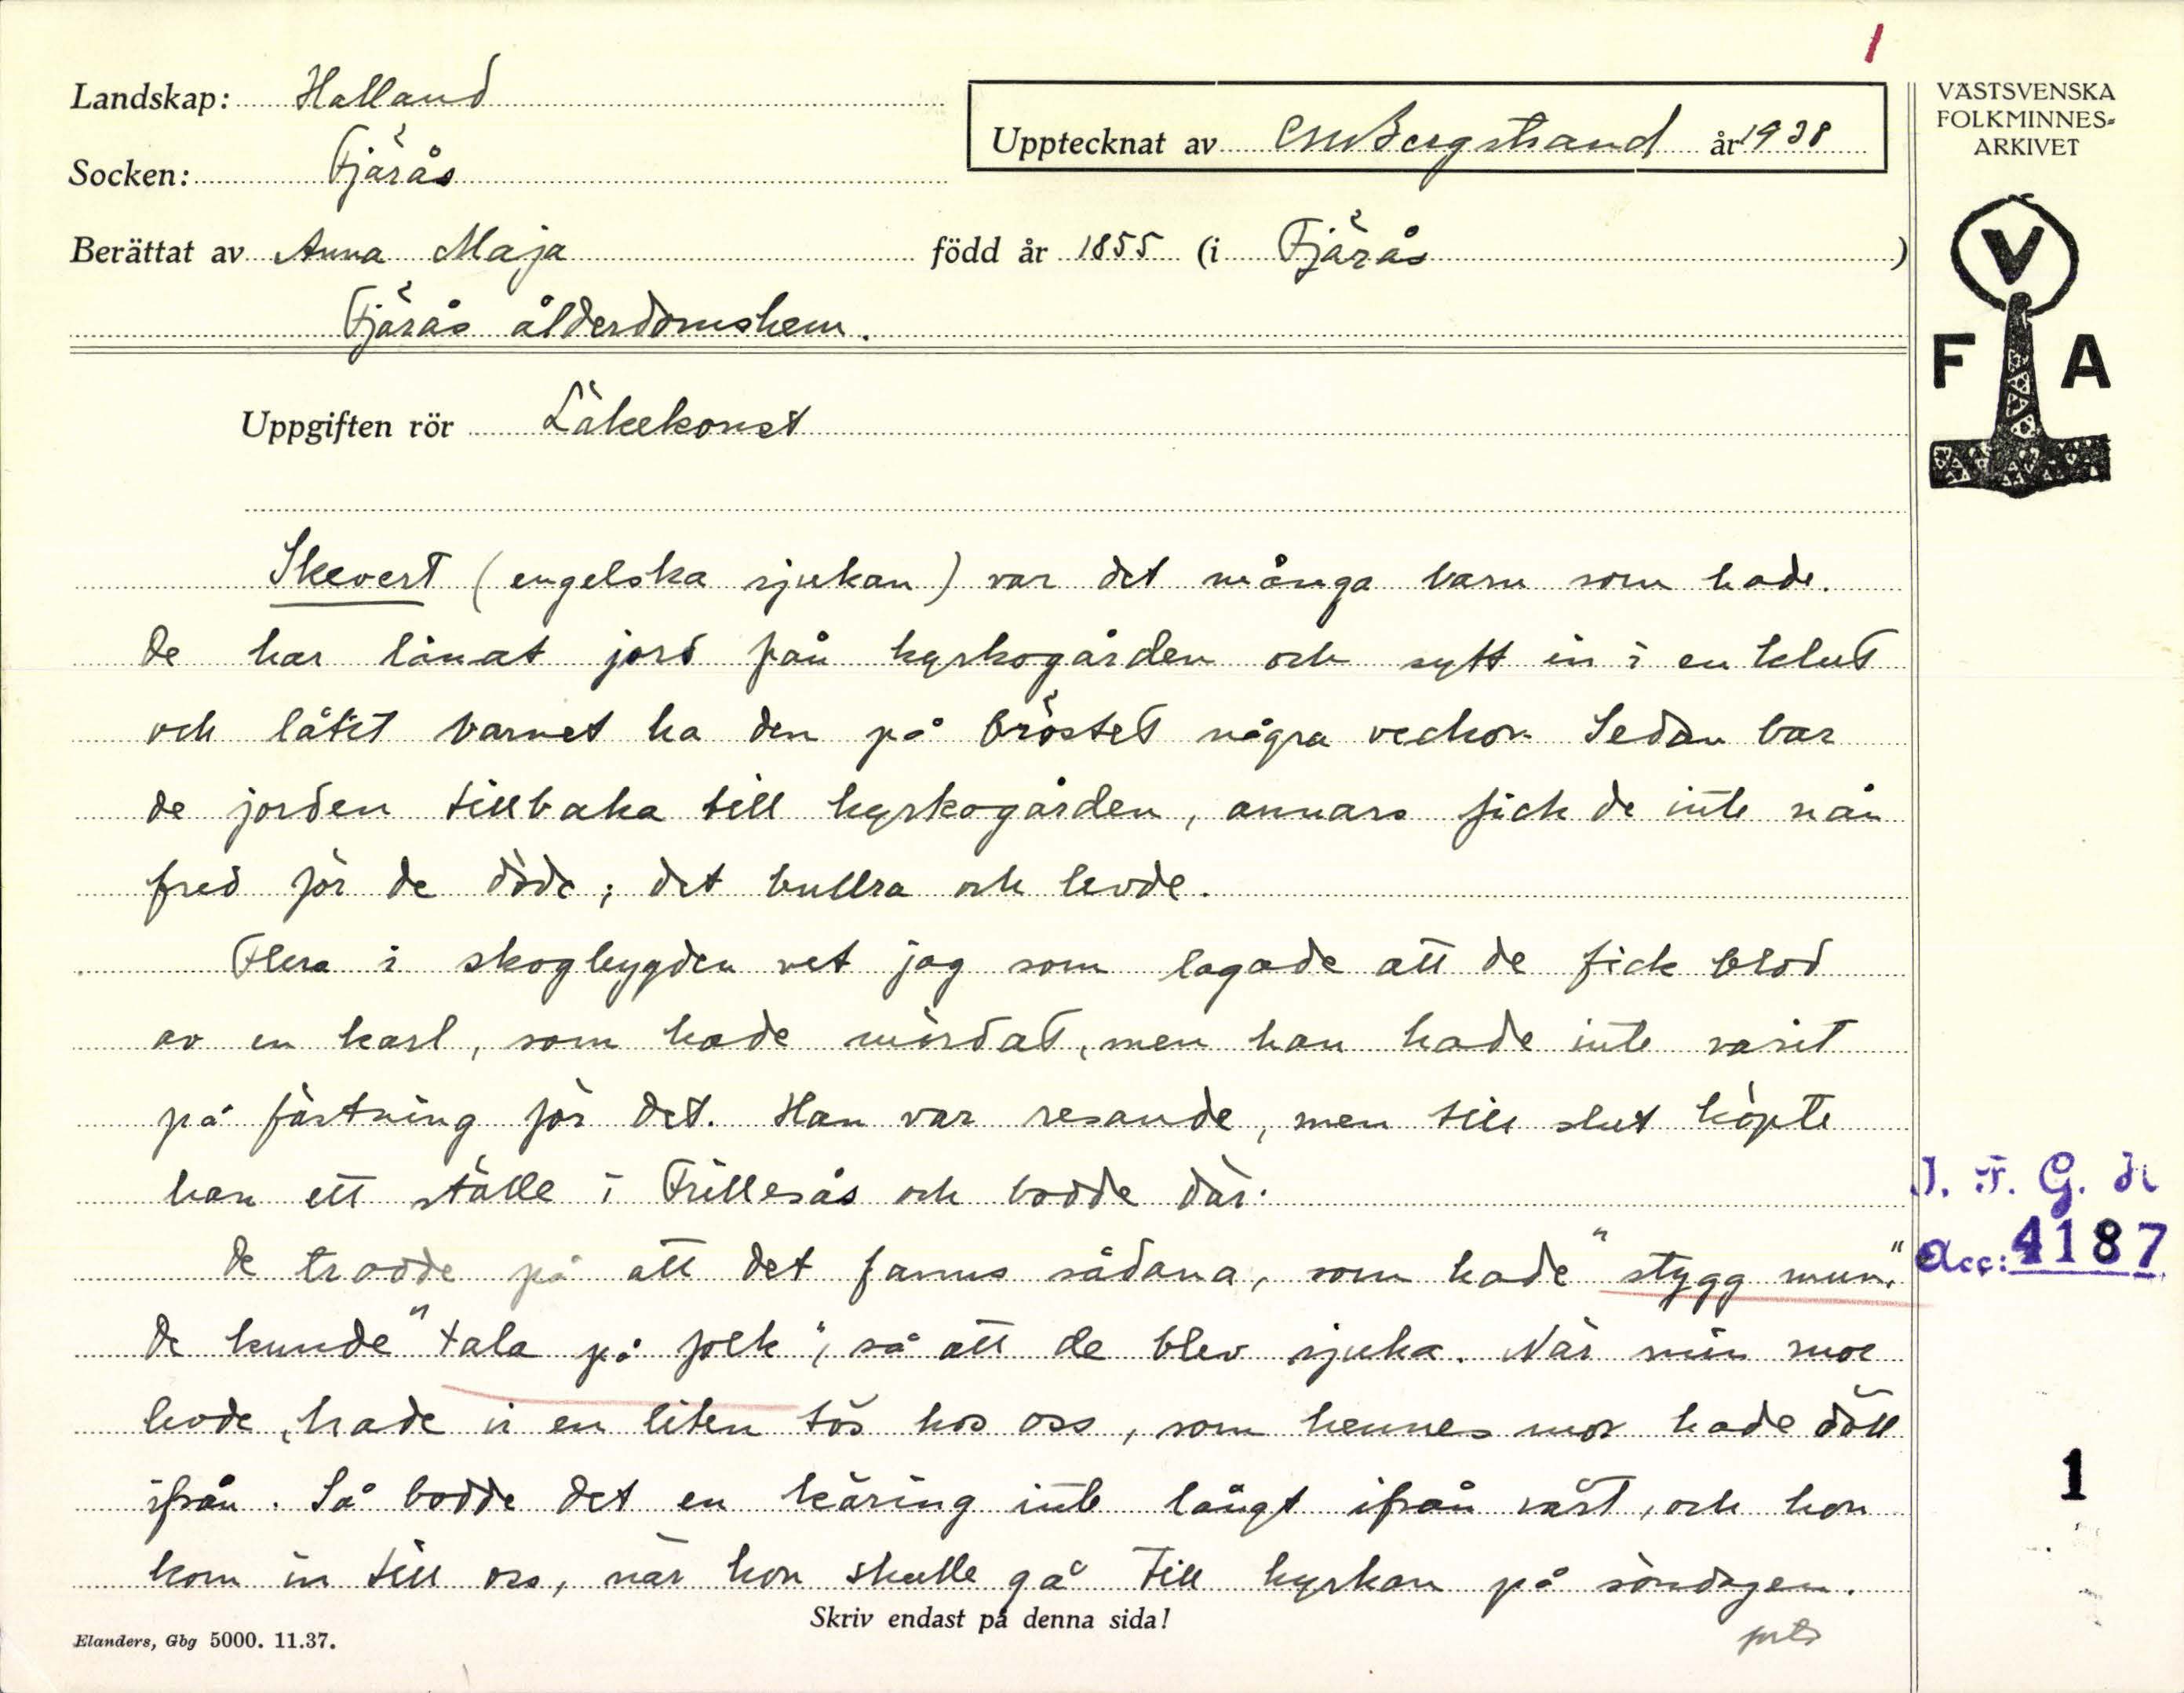 1
Landskap: Halland
Upptecknat av CMBergstrand år 1938
VÄSTSVENSKA
FOLKMINNES-
ARKIVET
Socken: Fjärås
Berättat av Anna Maja född år 1855 (i Fjärås )
Fjärås ålderdomshem.
V
F A
Uppgiften rör Läkekonst
Skevert (engelska sjukan) var det många barn som hade.
De har lånat jord från kyrkogården och sytt in i en klut
och låtit barnet ha den på bröstet några veckor. Sedan bar
de jorden tillbaka till kyrkogården, annars fick de inte nån
fred för de döde; det bullra och levde.
Flera i skogbygden vet jag som lagade att de fick blod
av en karl, som hade mördat, men han hade inte varit
på fästning för det. Han var resande, men till slut köpte
han ett ställe i Frillesås och bodde där.
I. F. G. H
De trodde på att det fanns sådana, som hade "stygg mun."
Acc: 4187
De kunde "tala på folk", så att de blev sjuka. När min moe
levde, hade vi en liten tös hos oss, som hennes mor hade dött
ifrån. Så bodde det en käring inte långt ifrån vårt, och hon
1
kom in till oss, när hon skulle gå till kyrkan på söndagen.
Skriv endast på denna sida!
forts
Elanders, Gbg 5000. 11.37.